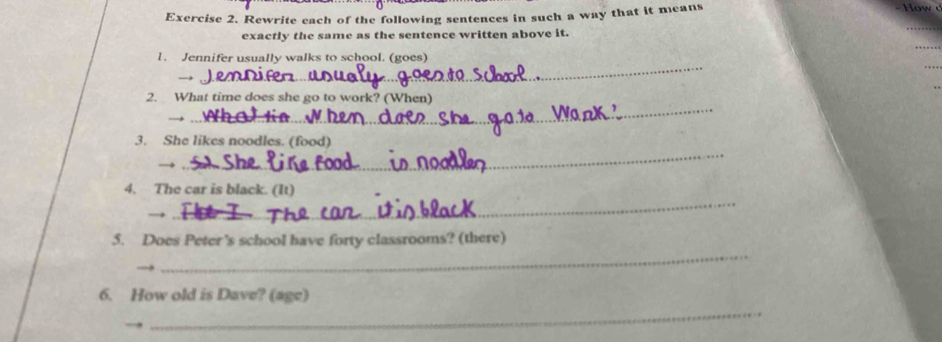 Exercise 2. Rewrite each of the following sentences in such a way that it means
exactly the same as the sentence written above it.
- How
1. Jennifer usually walks to school. (goes)
→ Jennifer usualy goes to school.
2. What time does she go to work? (When)
→ When does she go to Work?
3. She likes noodles. (food)
→ She like food is noodles
4. The car is black. (It)
→ The car it is black
5. Does Peter's school have forty classrooms? (there)
→
6. How old is Dave? (age)
→